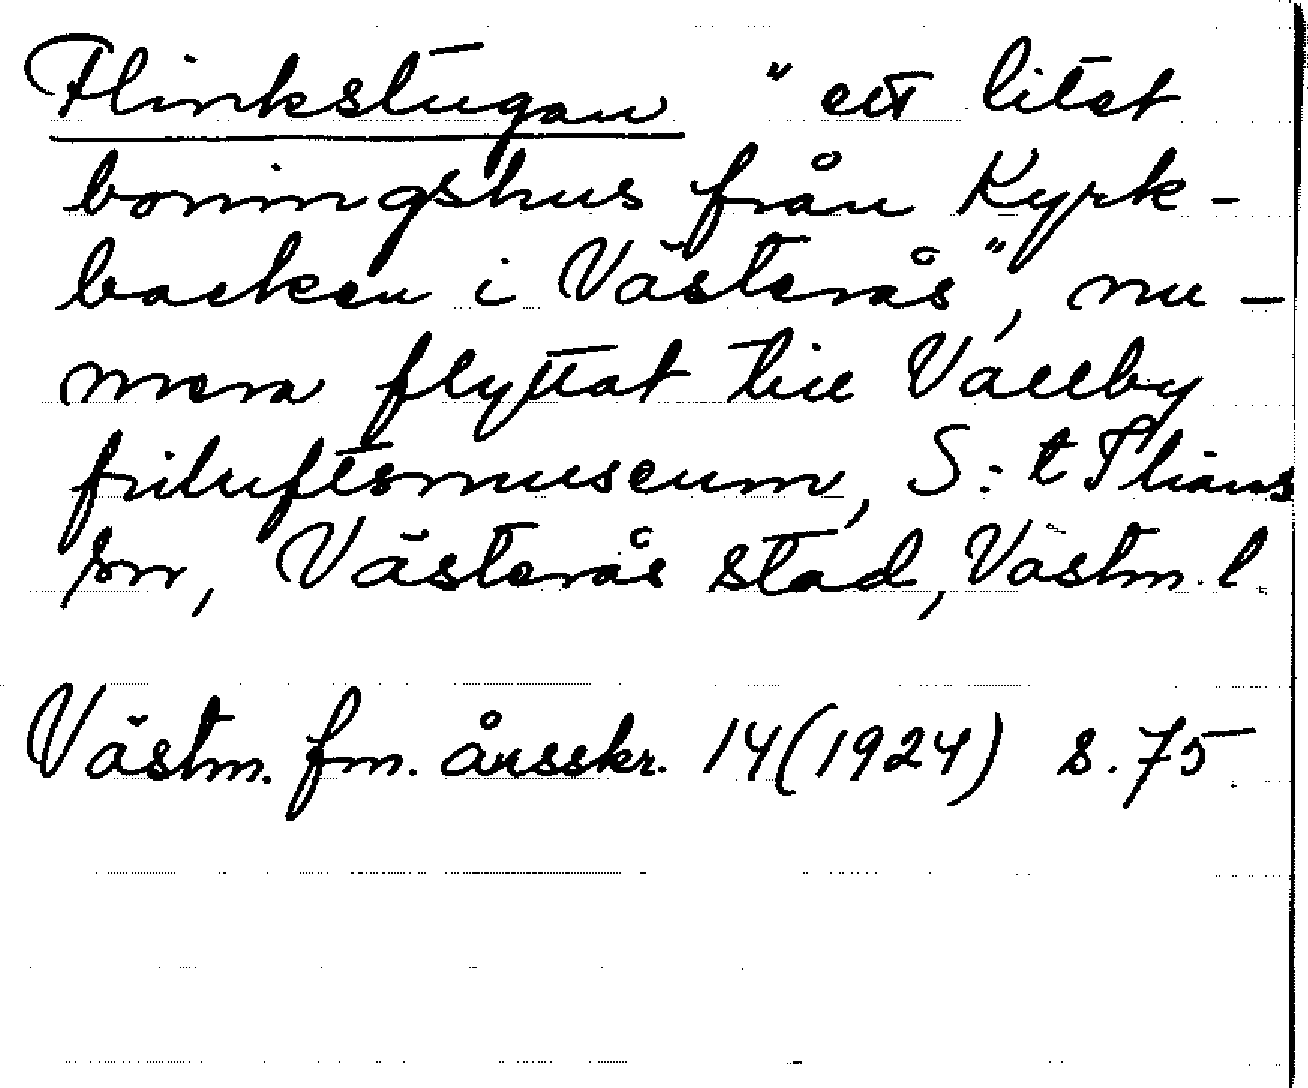 Flinkstugan "ett litet
boningshus från Kyrk-
backen i Västerås", nu-
mera flyttat till Vallby
friluftsmuseum, S:t Ilians
sn, Västerås stad, Västm. l.
Västm. fm. årsskr. 14 (1924) s. 75